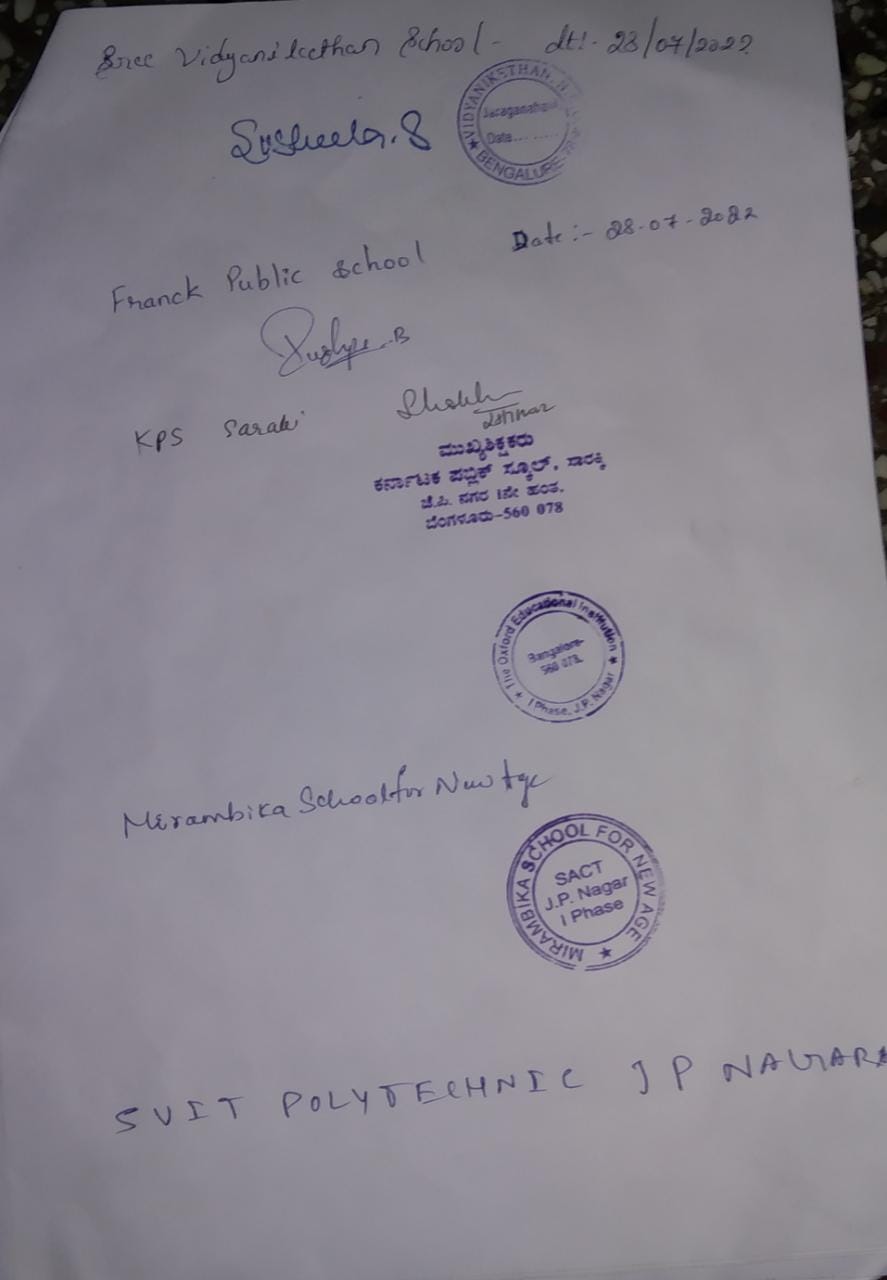 Sree Vidyanikethan School - dt:- 28/07/2022
Susheela.S
VIDYANIKETHAN
Date........
BENGALURE
Franck Public School Date :- 28-07-2022
Pushpa.B
KPS Sarakki
ಮುಖ್ಯಶಿಕ್ಷಕರು
ಕರ್ನಾಟಕ ಪಬ್ಲಿಕ್ ಸ್ಕೂಲ್, ಸಾರಕ್ಕಿ
ಜೆ.ಪಿ. ನಗರ 1ನೇ ಹಂತ,
ಬೆಂಗಳೂರು-560 078
The Oxford Educational Institution
Bangalore-
560 078.
I Phase, J.P. Nagar
Mirambika School for New Age
MIRAMBIKA SCHOOL FOR NEW AGE
SACT
J.P. Nagar
I Phase
SVIT POLYTECHNIC J P NAGARA